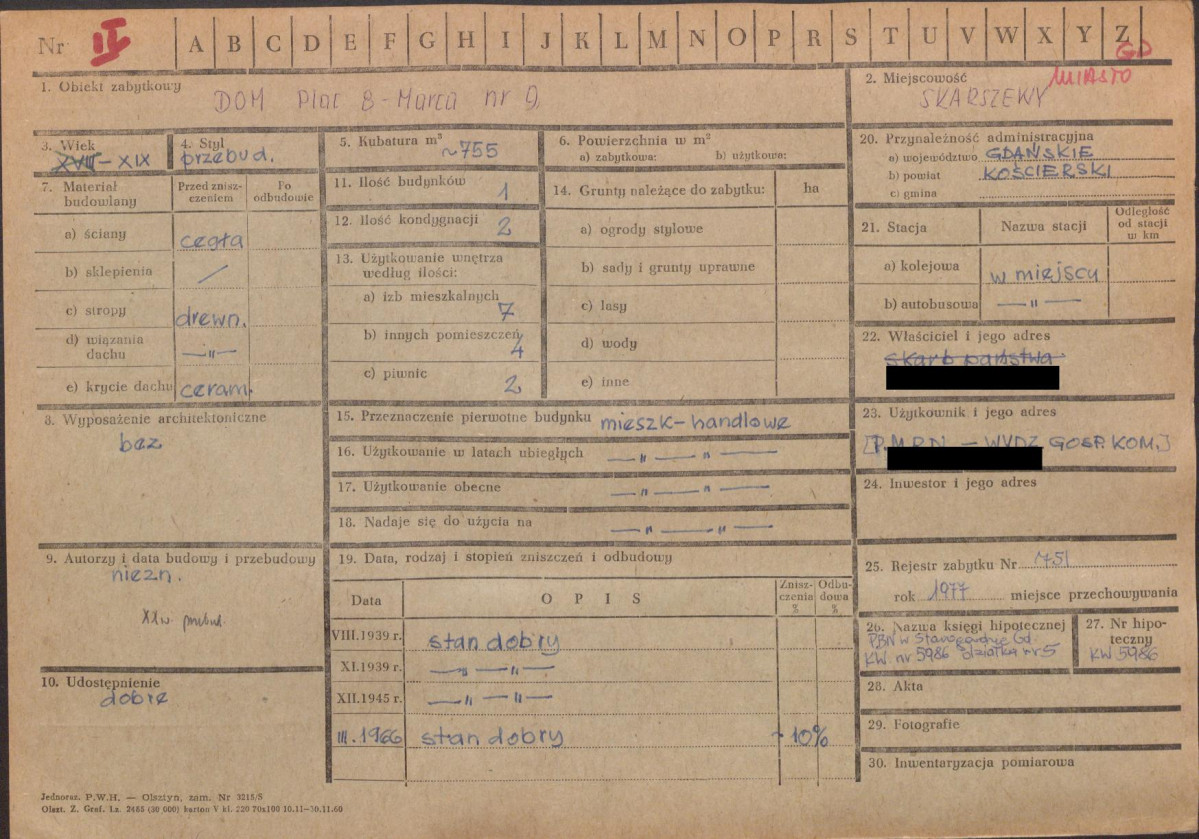 Nr II A B C D E F G H I J K L M N O P R S T U V W X Y Z
GD
1. Obiekt zabytkowy
DOM Plac 8-Marca nr 9
2. Miejscowość MIASTO
SKARSZEWY
3. Wiek
XVIII - XIX
4. Styl
przebud.
5. Kubatura m³
~755
6. Powierzchnia w m²
a) zabytkowa: b) użytkowa:
7. Materiał budowlany
Przed zniszczeniem
Po odbudowie
a) ściany cegła
b) sklepienia /
c) stropy drewn.
d) wiązania dachu —"—
e) krycie dachu ceram.
8. Wyposażenie architektoniczne
bez
9. Autorzy i data budowy i przebudowy
niezn.
XX w.
10. Udostępnienie
dobre
11. Ilość budynków 1
12. Ilość kondygnacji 2
13. Użytkowanie wnętrza według ilości:
a) izb mieszkalnych 7
b) innych pomieszczeń 4
c) piwnic 2
14. Grunty należące do zabytku: ha
a) ogrody stylowe
b) sady i grunty uprawne
c) lasy
d) wody
e) inne
15. Przeznaczenie pierwotne budynku mieszk-handlowe
16. Użytkowanie w latach ubiegłych —"—"—
17. Użytkowanie obecne —"—"—
18. Nadaje się do użycia na —"—"—
19. Data, rodzaj i stopień zniszczeń i odbudowy
Data OPIS Zniszczenia % Odbudowa %
VIII.1939 r. stan dobry
XI.1939 r. —"—"—
XII.1945 r. —"—"—
III.1966 stan dobry ~10%
20. Przynależność administracyjna
a) województwo GDAŃSKIE
b) powiat KOŚCIERSKI
c) gmina
21. Stacja Nazwa stacji Odległość od stacji w km
a) kolejowa w miejscu
b) autobusowa —"—
22. Właściciel i jego adres
skarb państwa
23. Użytkownik i jego adres
[P.M.R.N. — WYDZ. GOSP. KOM.]
24. Inwestor i jego adres
25. Rejestr zabytku Nr 751
rok 1977 miejsce przechowywania
26. Nazwa księgi hipotecznej
PBN w Starogardzie Gd.
KW. nr 5986 działka nr 5
27. Nr hipoteczny
KW 5986
28. Akta
29. Fotografie
30. Inwentaryzacja pomiarowa
Jednoraz. P.W.H. — Olsztyn, zam. Nr 3215/S
Olszt. Z. Graf. Lz. 2485 (30 000) karton V kl. 220 70x100 10.11—30.11.60